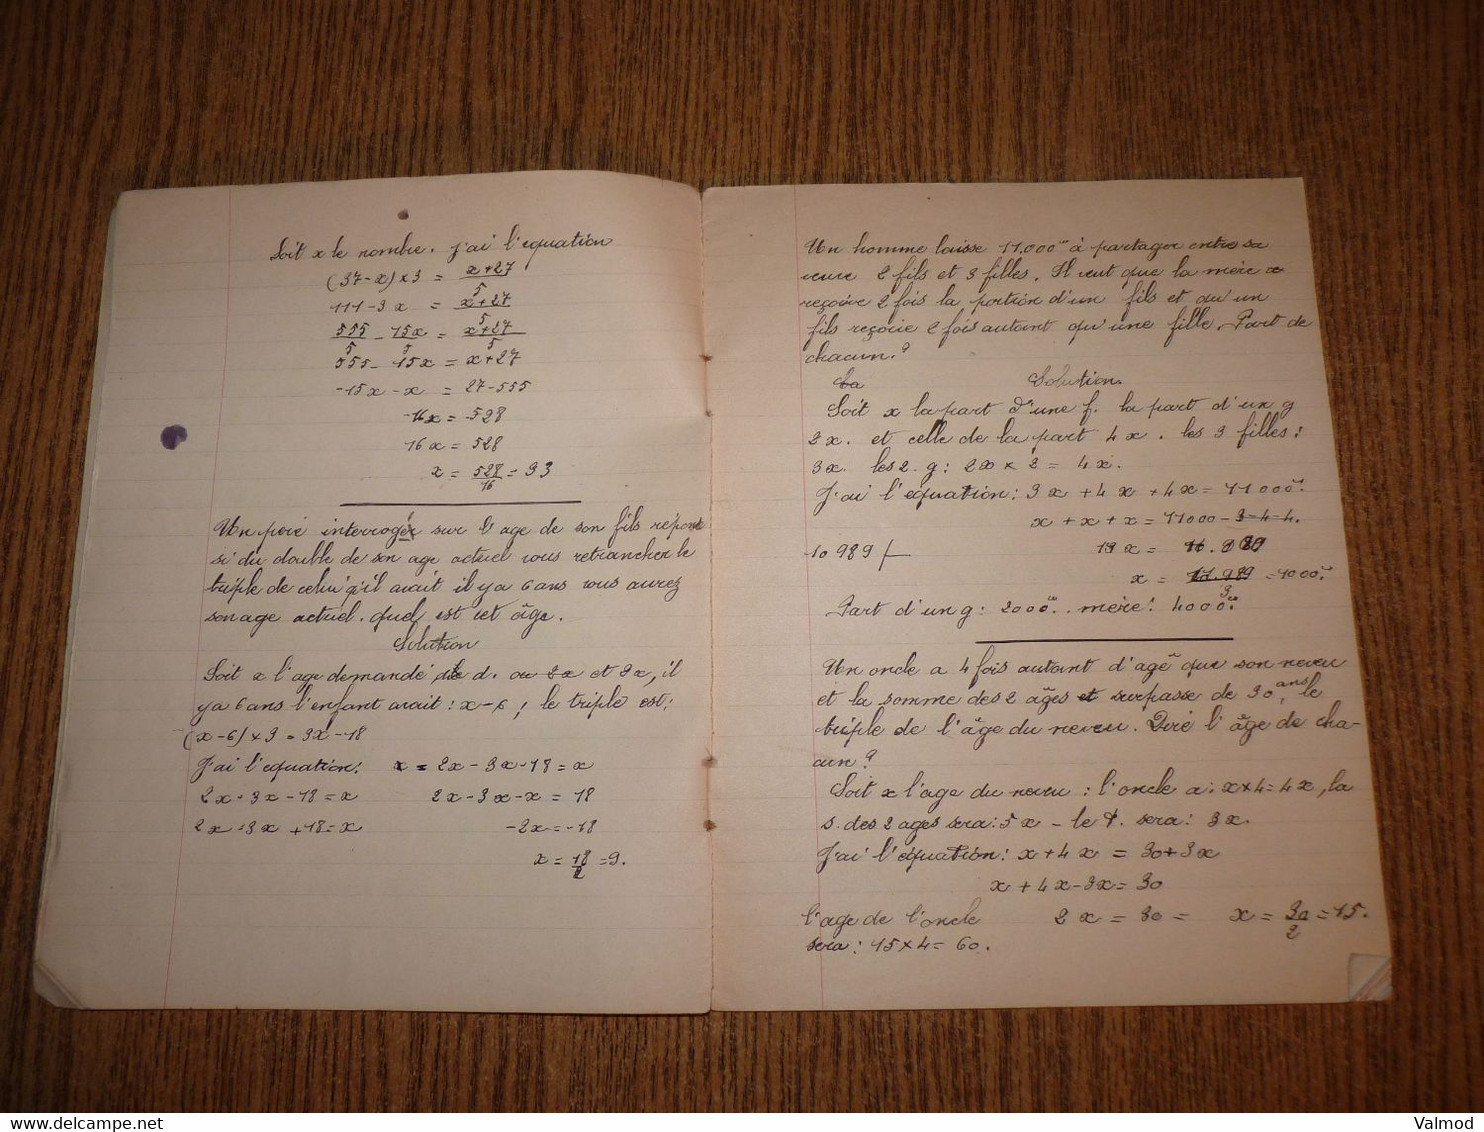 Soit x le nombre. J'ai l'equation
(37-x)×3 = x+27/5
111-3x = x+27/5
555/5 - 15x/5 = x+27/5
555-15x = x+27
-15x-x = 27-555
-16x = -528
16x = 528
x = 528/16 = 33
Un père interrogér sur l'age de son fils répond
si du double de son age actuel vous retrancher le
triple de celui qu'il avait il y a 6 ans vous aurez
son age actuel. quel est cet âge.
Solution
Soit x l'age demandé, le d. ou 2x et 3x, il
y a 6 ans l'enfant avait : x-6 ; le triple est :
(x-6)×3 = 3x-18
J'ai l'equation : x = 2x-3x-18 = x
2x-3x-18 = x 2x-3x-x = 18
2x-3x+18 = x -2x = -18
x = 18/2 = 9.
Un homme laisse 11.000 à partager entre sa
veuve 2 fils et 3 filles. Il veut que la mère
reçoive 2 fois la portion d'un fils et qu'un
fils reçoive 2 fois autant qu'une fille. Part de
chacun.?
La Solution.
Soit x la part d'une f. la part d'un g
2x. et celle de la part 4x. les 3 filles :
3x. les 2. g : 2x × 2 = 4x.
J'ai l'equation : 3x + 4x + 4x = 11000.
x + x + x = 11000 - 3-4-4.
10989 x =
x = 11.989/3 = 1000.
Part d'un g : 2000. mère : 4000.
Un oncle a 4 fois autant d'age que son neveu
et la somme des 2 âges et surpasse de 30 ans, le
triple de l'âge du neveu. Dire l'âge de cha-
cun ?
Soit x l'age du neveu : l'oncle a : x×4 = 4x, la
s. des 2 ages sera : 5x - le t. sera : 3x.
J'ai l'équation : x+4x = 30+3x
x+4x-3x = 30
l'age de l'oncle 2x = 30 = x = 30/2 = 15.
sera : 15×4 = 60.
Valmod